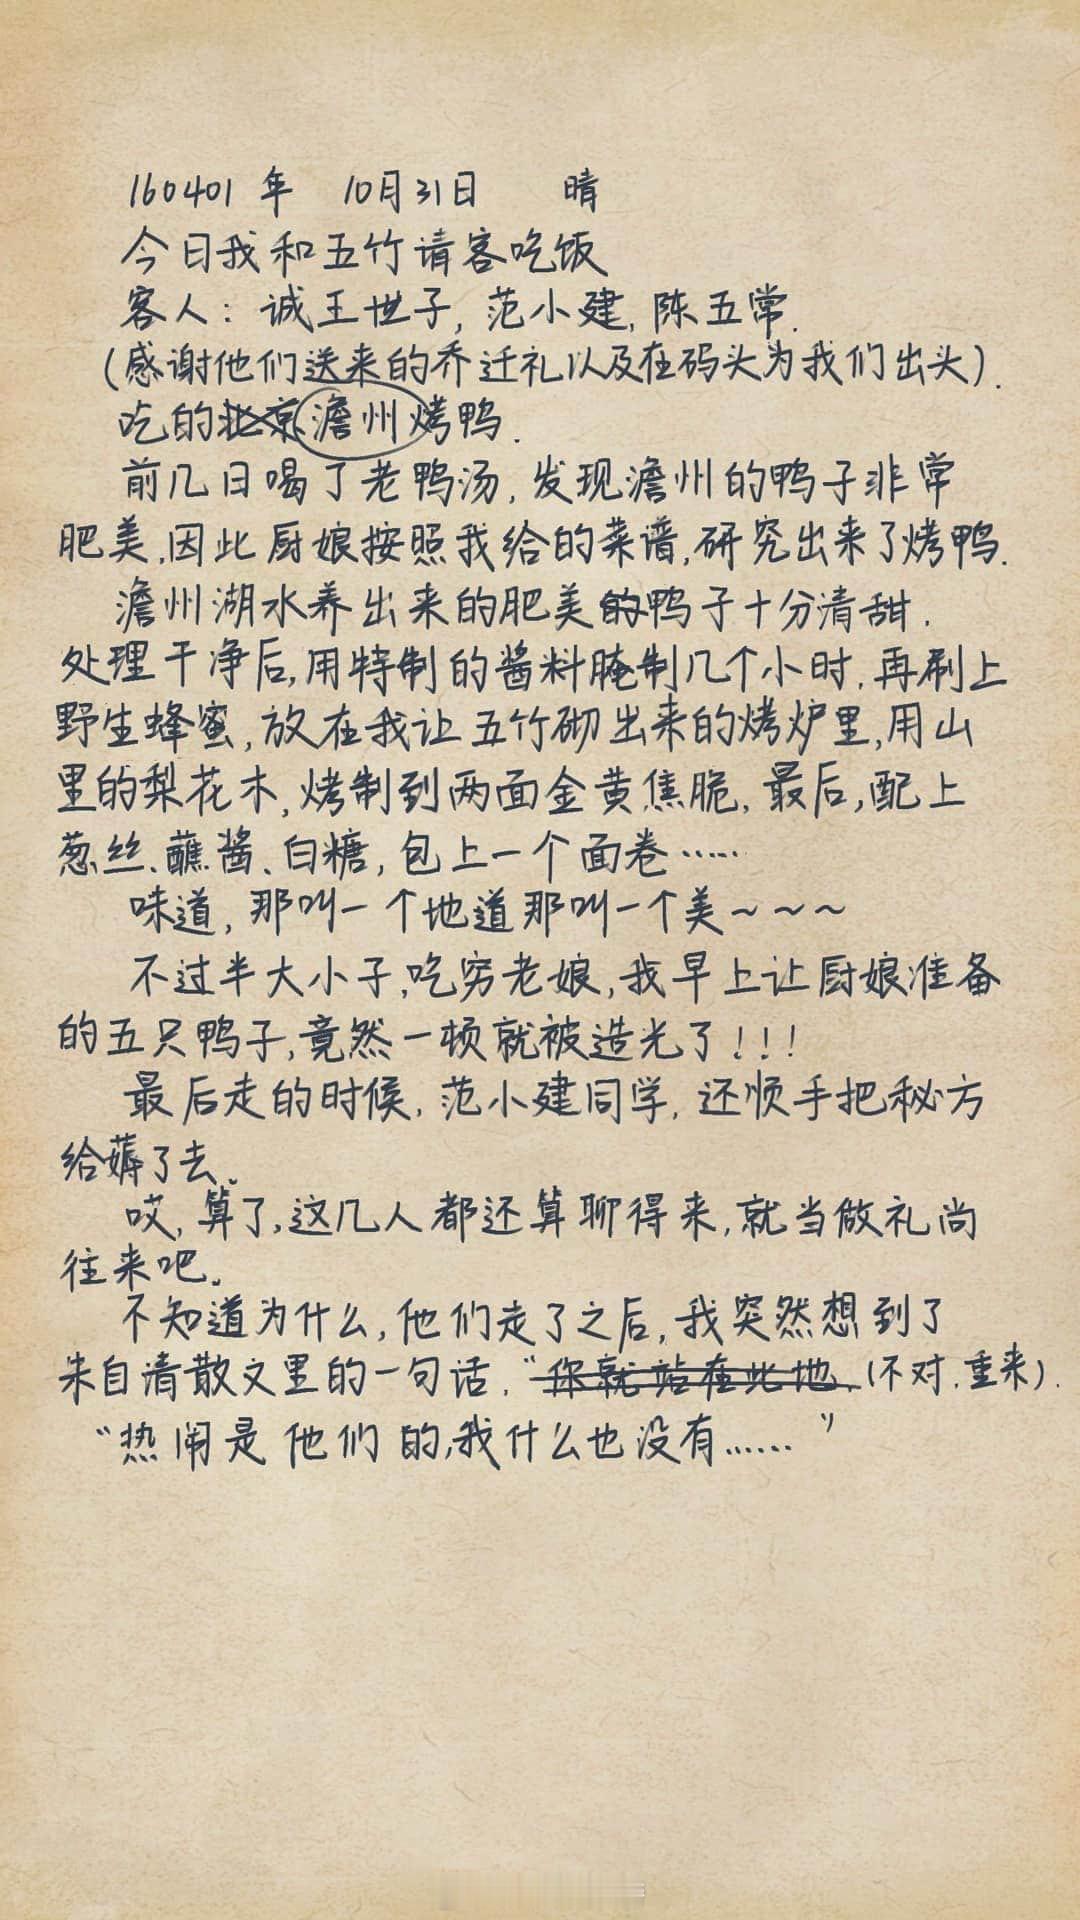 160401年 10月31日 晴
今日我和五竹请客吃饭
客人：诚王世子，范小建，陈五常.
（感谢他们送来的乔迁礼以及在码头为我们出头）.
吃的北京澹州烤鸭.
前几日喝了老鸭汤，发现澹州的鸭子非常
肥美.因此厨娘按照我给的菜谱，研究出来了烤鸭.
澹州湖水养出来的肥美的鸭子十分清甜.
处理干净后，用特制的酱料腌制几个小时.再刷上
野生蜂蜜，放在我让五竹砌出来的烤炉里，用山
里的梨花木，烤制到两面金黄焦脆.最后，配上
葱丝、蘸酱、白糖，包上一个面卷……
味道，那叫一个地道那叫一个美~~~
不过半大小子，吃穷老娘，我早上让厨娘准备
的五只鸭子，竟然一顿就被造光了！！！
最后走的时候，范小建同学，还顺手把秘方
给薅了去。
哎，算了，这几人都还算聊得来，就当做礼尚
往来吧。
不知道为什么，他们走了之后，我突然想到了
朱自清散文里的一句话，“你就站在此地.（不对.重来）.
“热闹是他们的，我什么也没有……”